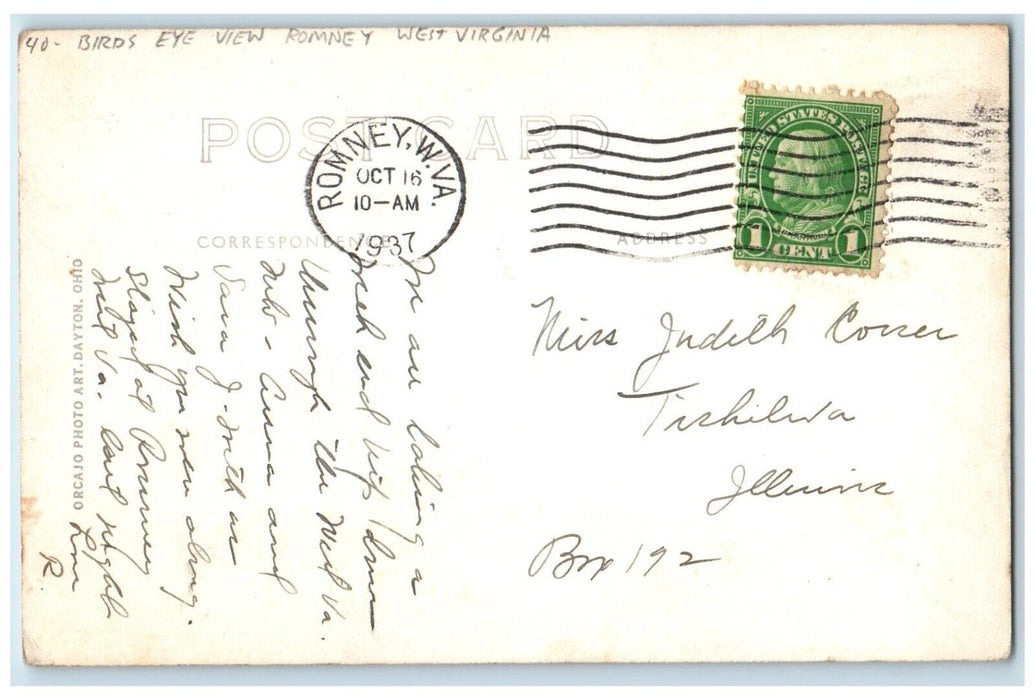 40- BIRDS EYE VIEW ROMNEY WEST VIRGINIA
POST CARD
ROMNEY, W. VA.
OCT 16
10-AM
1937
UNITED STATES POSTAGE
1 CENT 1
CORRESPONDENCE
ADDRESS
We are taking a
week end trip down
through the West Va.
Mts - Anna and
Sara J. with us
Wish you were along.
Stayed at Romney
West Va. last night
Love
R
Miss Judith Corser
Tiskilwa
Illinois
Box 192
ORCAJO PHOTO ART. DAYTON. OHIO